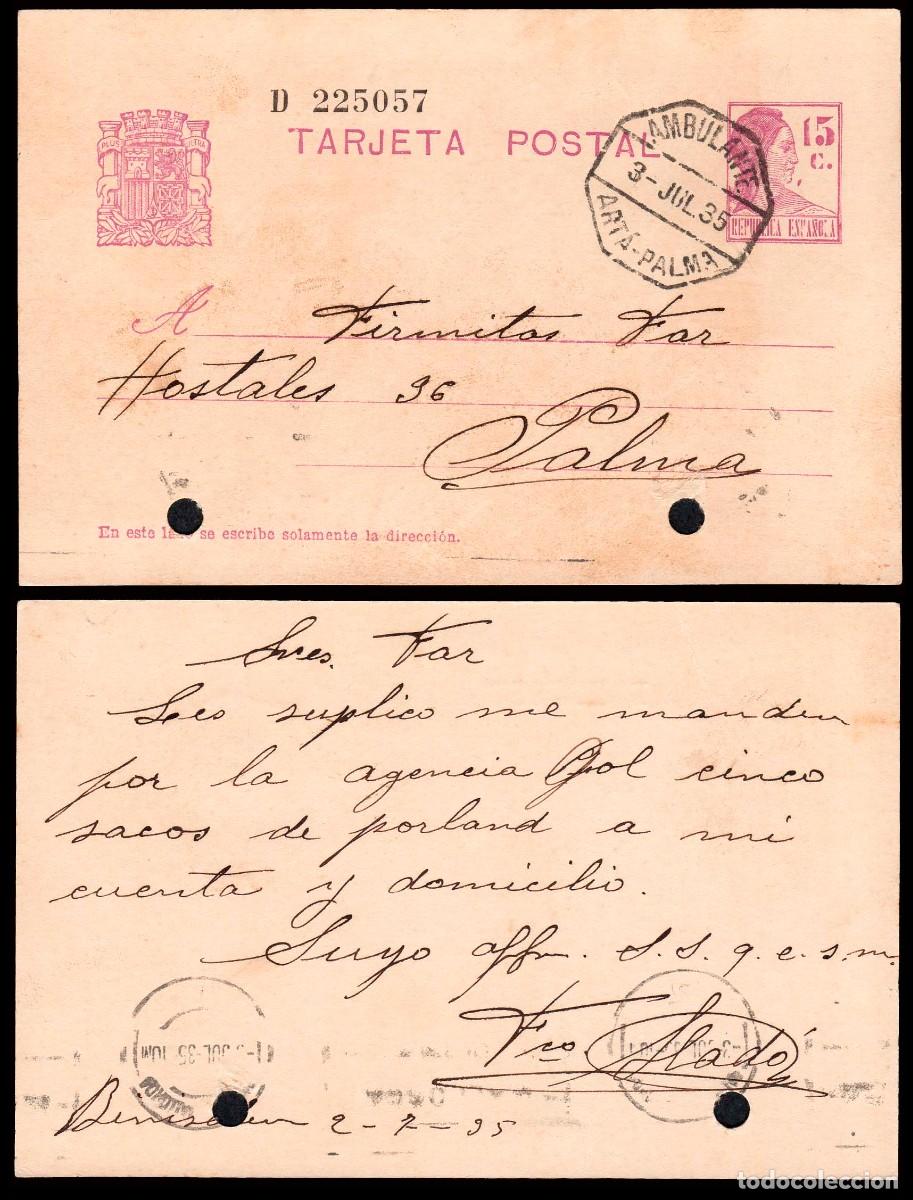 D 225057
TARJETA POSTAL
PLUS ULTRA
AMBULANTE
3-JUL.35
ARTÁ-PALMA
15 c.
REPUBLICA ESPAÑOLA
A Firmitos Far
Hostales 36
Palma
En este lado se escribe solamente la dirección.
Sres. Far
Les suplico me manden
por la agencia Gol cinco
sacos de porland a mi
cuenta y domicilio.
Suyo affm. S.S.q.e.s.m.
Fco. Lladó
JUL-35 10M
Binisalem 2-7-35
todocoleccion